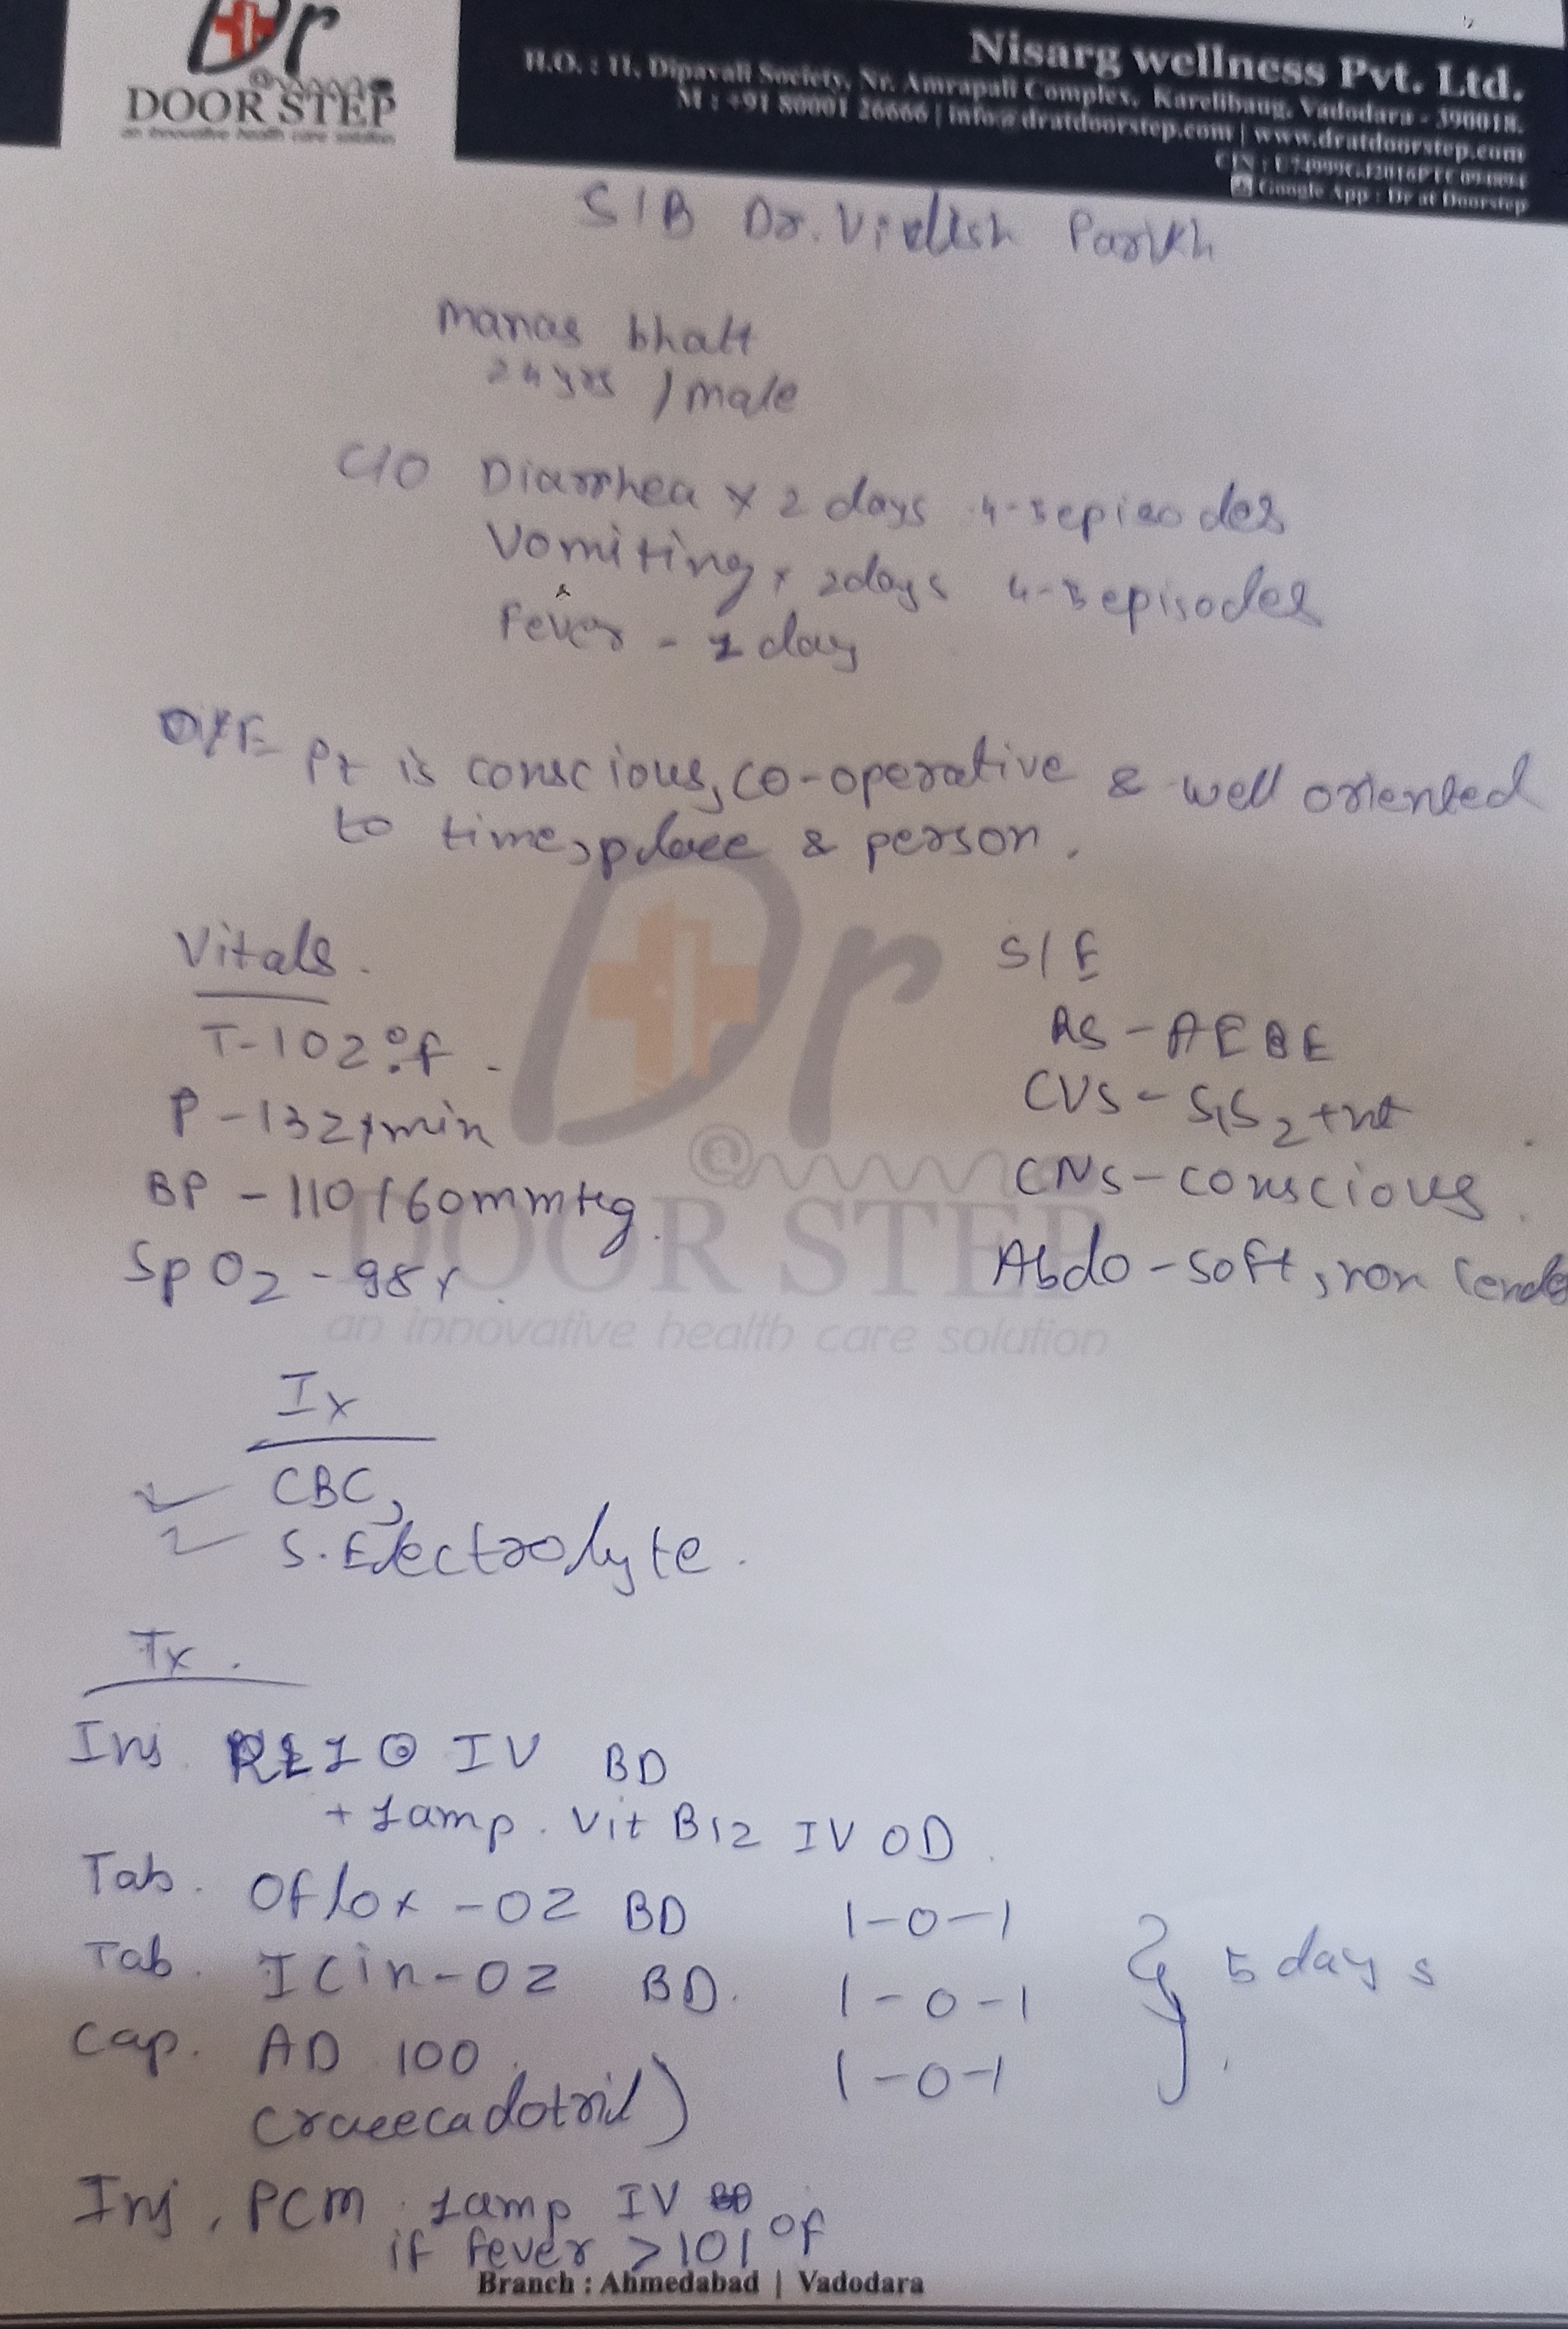 Dr
@
DOOR STEP
an innovative health care solution
Nisarg wellness Pvt. Ltd.
H.O. : 11, Dipavali Society, Nr. Amrapali Complex, Karelibaug, Vadodara - 390018.
M : +91 80001 26666 | info@dratdoorstep.com | www.dratdoorstep.com
CIN : U74999GJ2016PTC094894
Google App : Dr at Doorstep
S/B Dr. Parikh
Manas bhatt
24yrs / male
C/O Diarrhea x 2 days 4-5 episodes
Vomiting x 2days 4-5 episodes
Fever - 1 day
O/E Pt is conscious, co-operative & well oriented
to time, place & person.
Vitals.
T-102°F.
P-132/min
BP - 110/60mmHg.
SpO2 - 98%.
S/E
RS - AEBE
CVS - S1S2 +nt
CNS - conscious.
Abdo - soft, non tender
Dr
@
DOOR STEP
an innovative health care solution
Ix
CBC,
S. Electrolyte.
Tx.
Inj. RL 1 IV BD
+ 1amp. Vit B12 IV OD.
Tab. Oflox - OZ BD 1-0-1
Tab. ICin-OZ BD. 1-0-1 } 5 days
Cap. AD 100 1-0-1
(racecadotril)
Inj. PCM 1amp IV
if fever >101°F
Branch : Ahmedabad | Vadodara